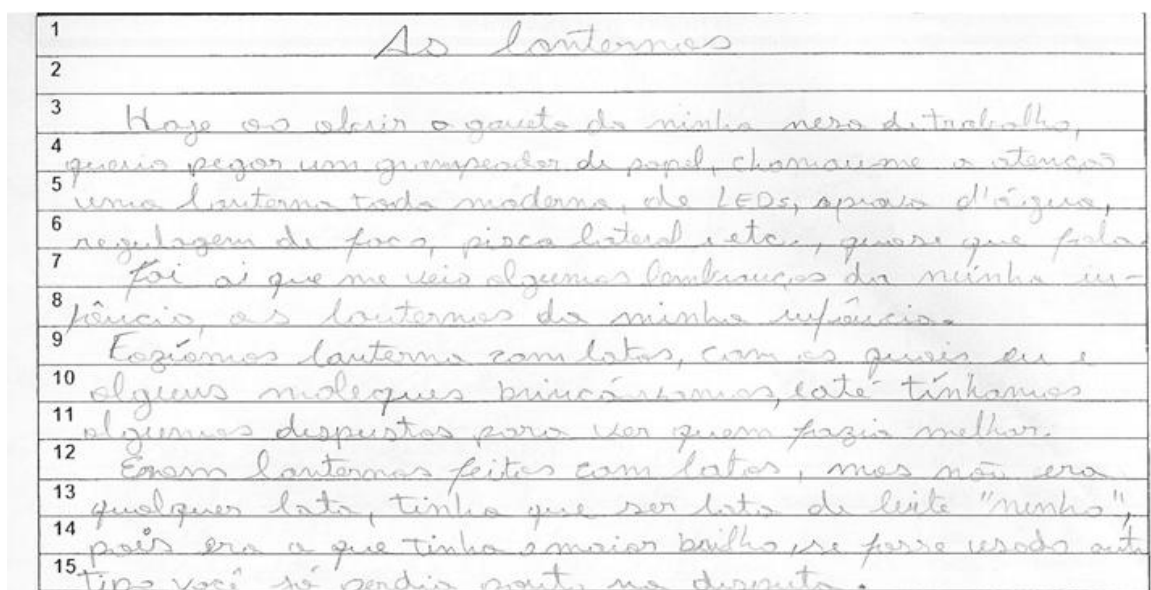 1 As lanternas
2
3 Hoje ao abrir a gaveta da minha mesa de trabalho,
4 queria pegar um grampeador de papel, chamou-me a atenção
5 uma lanterna toda moderna, de LEDs, aprova d'água,
6 regulagem de foco, pisca lateral e etc., quase que fala.
7 Foi ai que me veio algumas lembranças da minha in-
8 fância, as lanternas da minha infância.
9 Faziamos lanterna com latas, com as quais eu e
10 alguns moleques brincávamos, e até tínhamos
11 algumas disputas para ver quem fazia melhor.
12 Eram lanternas feitas com latas, mas não era
13 qualquer lata, tinha que ser lata de leite "ninho",
14 pois era a que tinha o maior brilho, se fosse usado
15 tipo você só perdia na disputa.